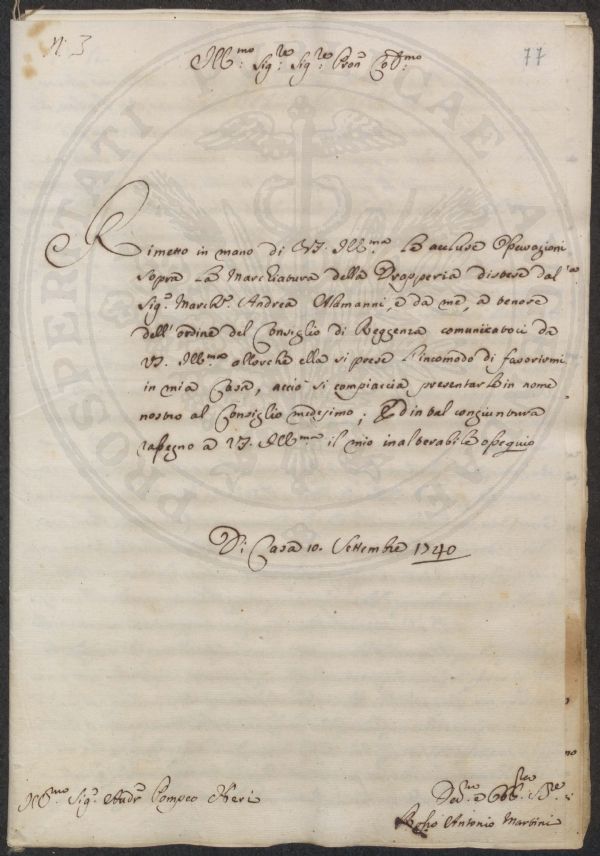 N: 3
77
Ill:mo Sig:re Sig:re Pron Col:mo
Rimetto in mano di VS. Ill:ma le accluse Operazioni
sopra la Marchiatura della Drapperia distese dal
Sig:r March:e Andrea Alamanni, e da me, a tenore
dell'ordine del Consiglio di Reggenza comunicatoci da
VS. Ill:ma allorchè ella si prese l'incomodo di favorirmi
in mia Casa, acciò si compiaccia presentarle in nome
nostro al Consiglio medesimo; Ed in tal congiuntura
rassegno a VS. Ill:ma il mio inalterabile ossequio
Di Casa 10. Settembre 1740
Ill:mo Sig:r Aud:r Pompeo Neri
Dev:mo e Obb:mo
Antonio Martini
PROSPERITATI PUBLICAE